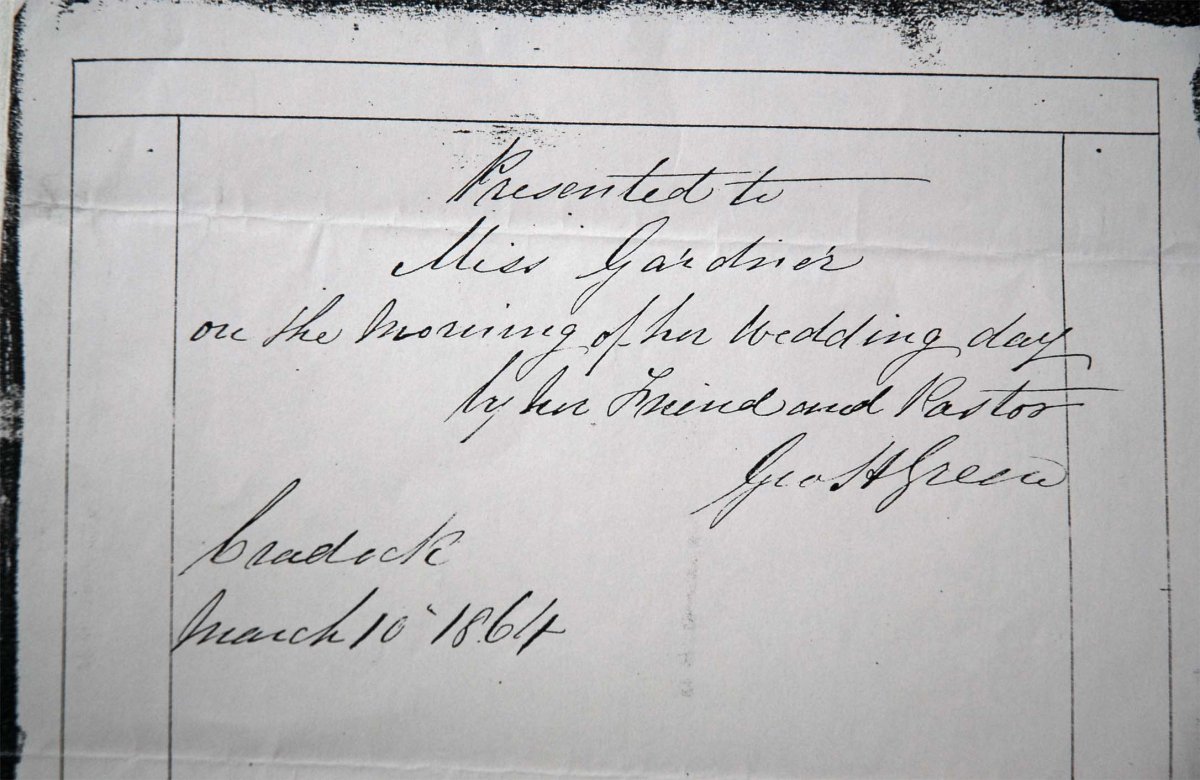 Presented to
Miss Gardner
on the Morning of her Wedding day
by her Friend and Pastor
Geo H Green
Cradock
March 10" 1864